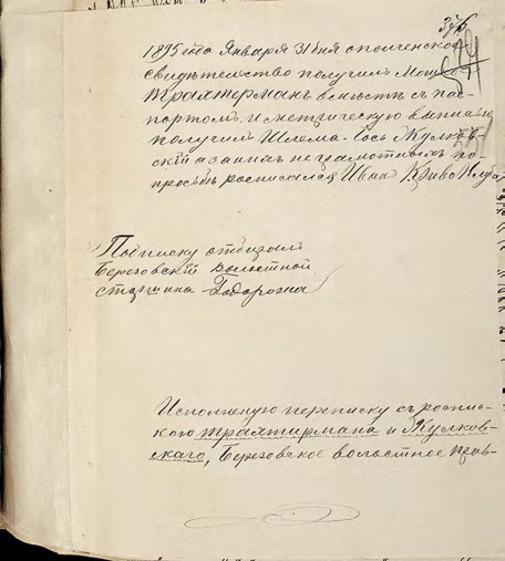 1895 года Января 31 дня ополченское
свидѣтельство получилъ Мошко
Трахтерманъ вместѣ съ пас-
портомъ. и метрическую выпись
получилъ Шлема-Іось Жулков-
скій а за нихъ неграмотныхъ по-
просьбѣ росписался Иванъ
Подписку отбиралъ
Березовскій волостной
старшина
Исполненую переписку съ роспис-
кою Трахтирмана и Жулков-
скаго, Березовское волостное прав-